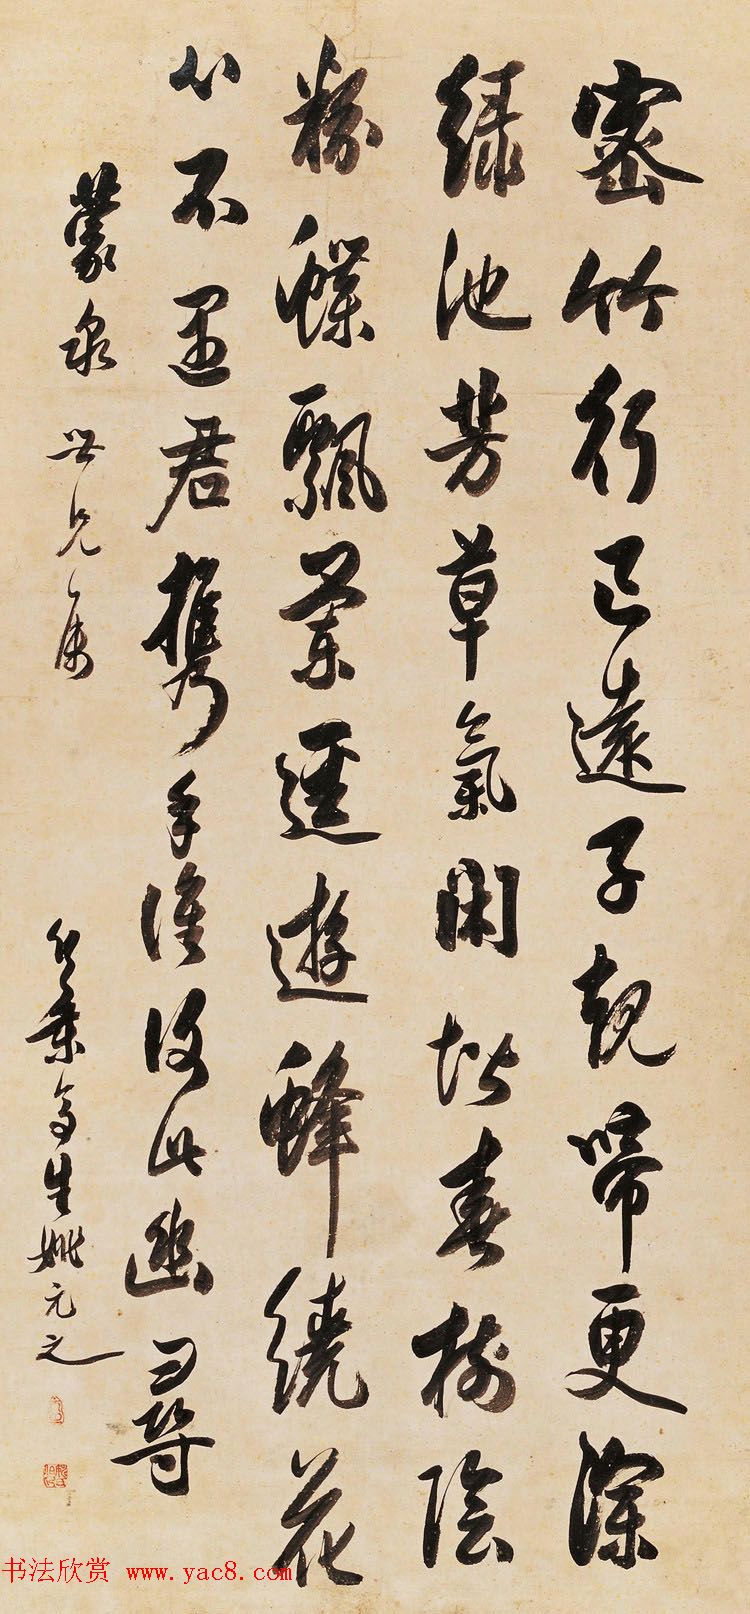 密竹行已遠子規啼更深
綠池芳草氣閑堦春樹陰
粉蝶飄蘭逕遊蜂繞花
心不遇君攜手誰復此幽尋
蒙泉世兄屬
竹葉亭生姚元之
书法欣赏 www.yac8.com